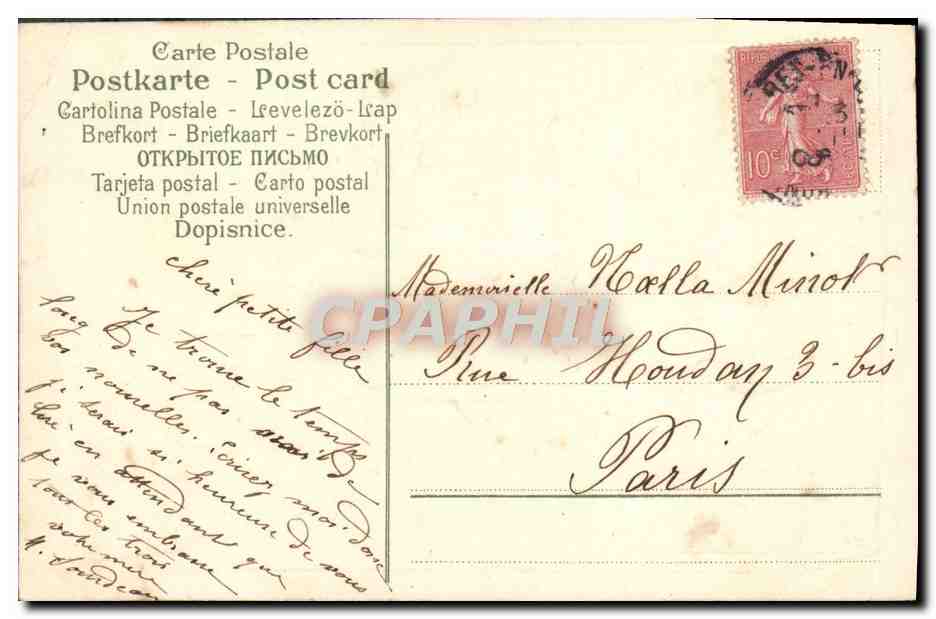 Carte Postale
Postkarte - Post card
Cartolina Postale - Levelező-Lap
Brefkort - Briefkaart - Brevkort
ОТКРЫТОЕ ПИСЬМО
Tarjeta postal - Carto postal
Union postale universelle
Dopisnice.
10c
CPAPHIL
Mademoiselle Noella Minot
Rue Houdan 3-bis
Paris
chere petite fille
Je trouve le temps
long de ne pas avoir de
vos nouvelles. écrivez moi donc
je serais si heureuse de vous
lire en attendant que
je vous embrasse
tout les trois
votre mère